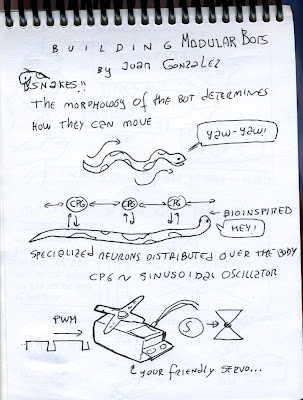 BUILDING MODULAR BOTS
BY JUAN GONZALEZ
SNAKES!!
THE MORPHOLOGY OF THE BOT DETERMINES
HOW THEY CAN MOVE
YAW-YAW!
CPG CPG CPG
BIOINSPIRED
HEY!
SPECIALIZED NEURONS DISTRIBUTED OVER THE BODY
CPG ~ SINUSOIDAL OSCILLATOR
PWM
S
YOUR FRIENDLY SERVO...